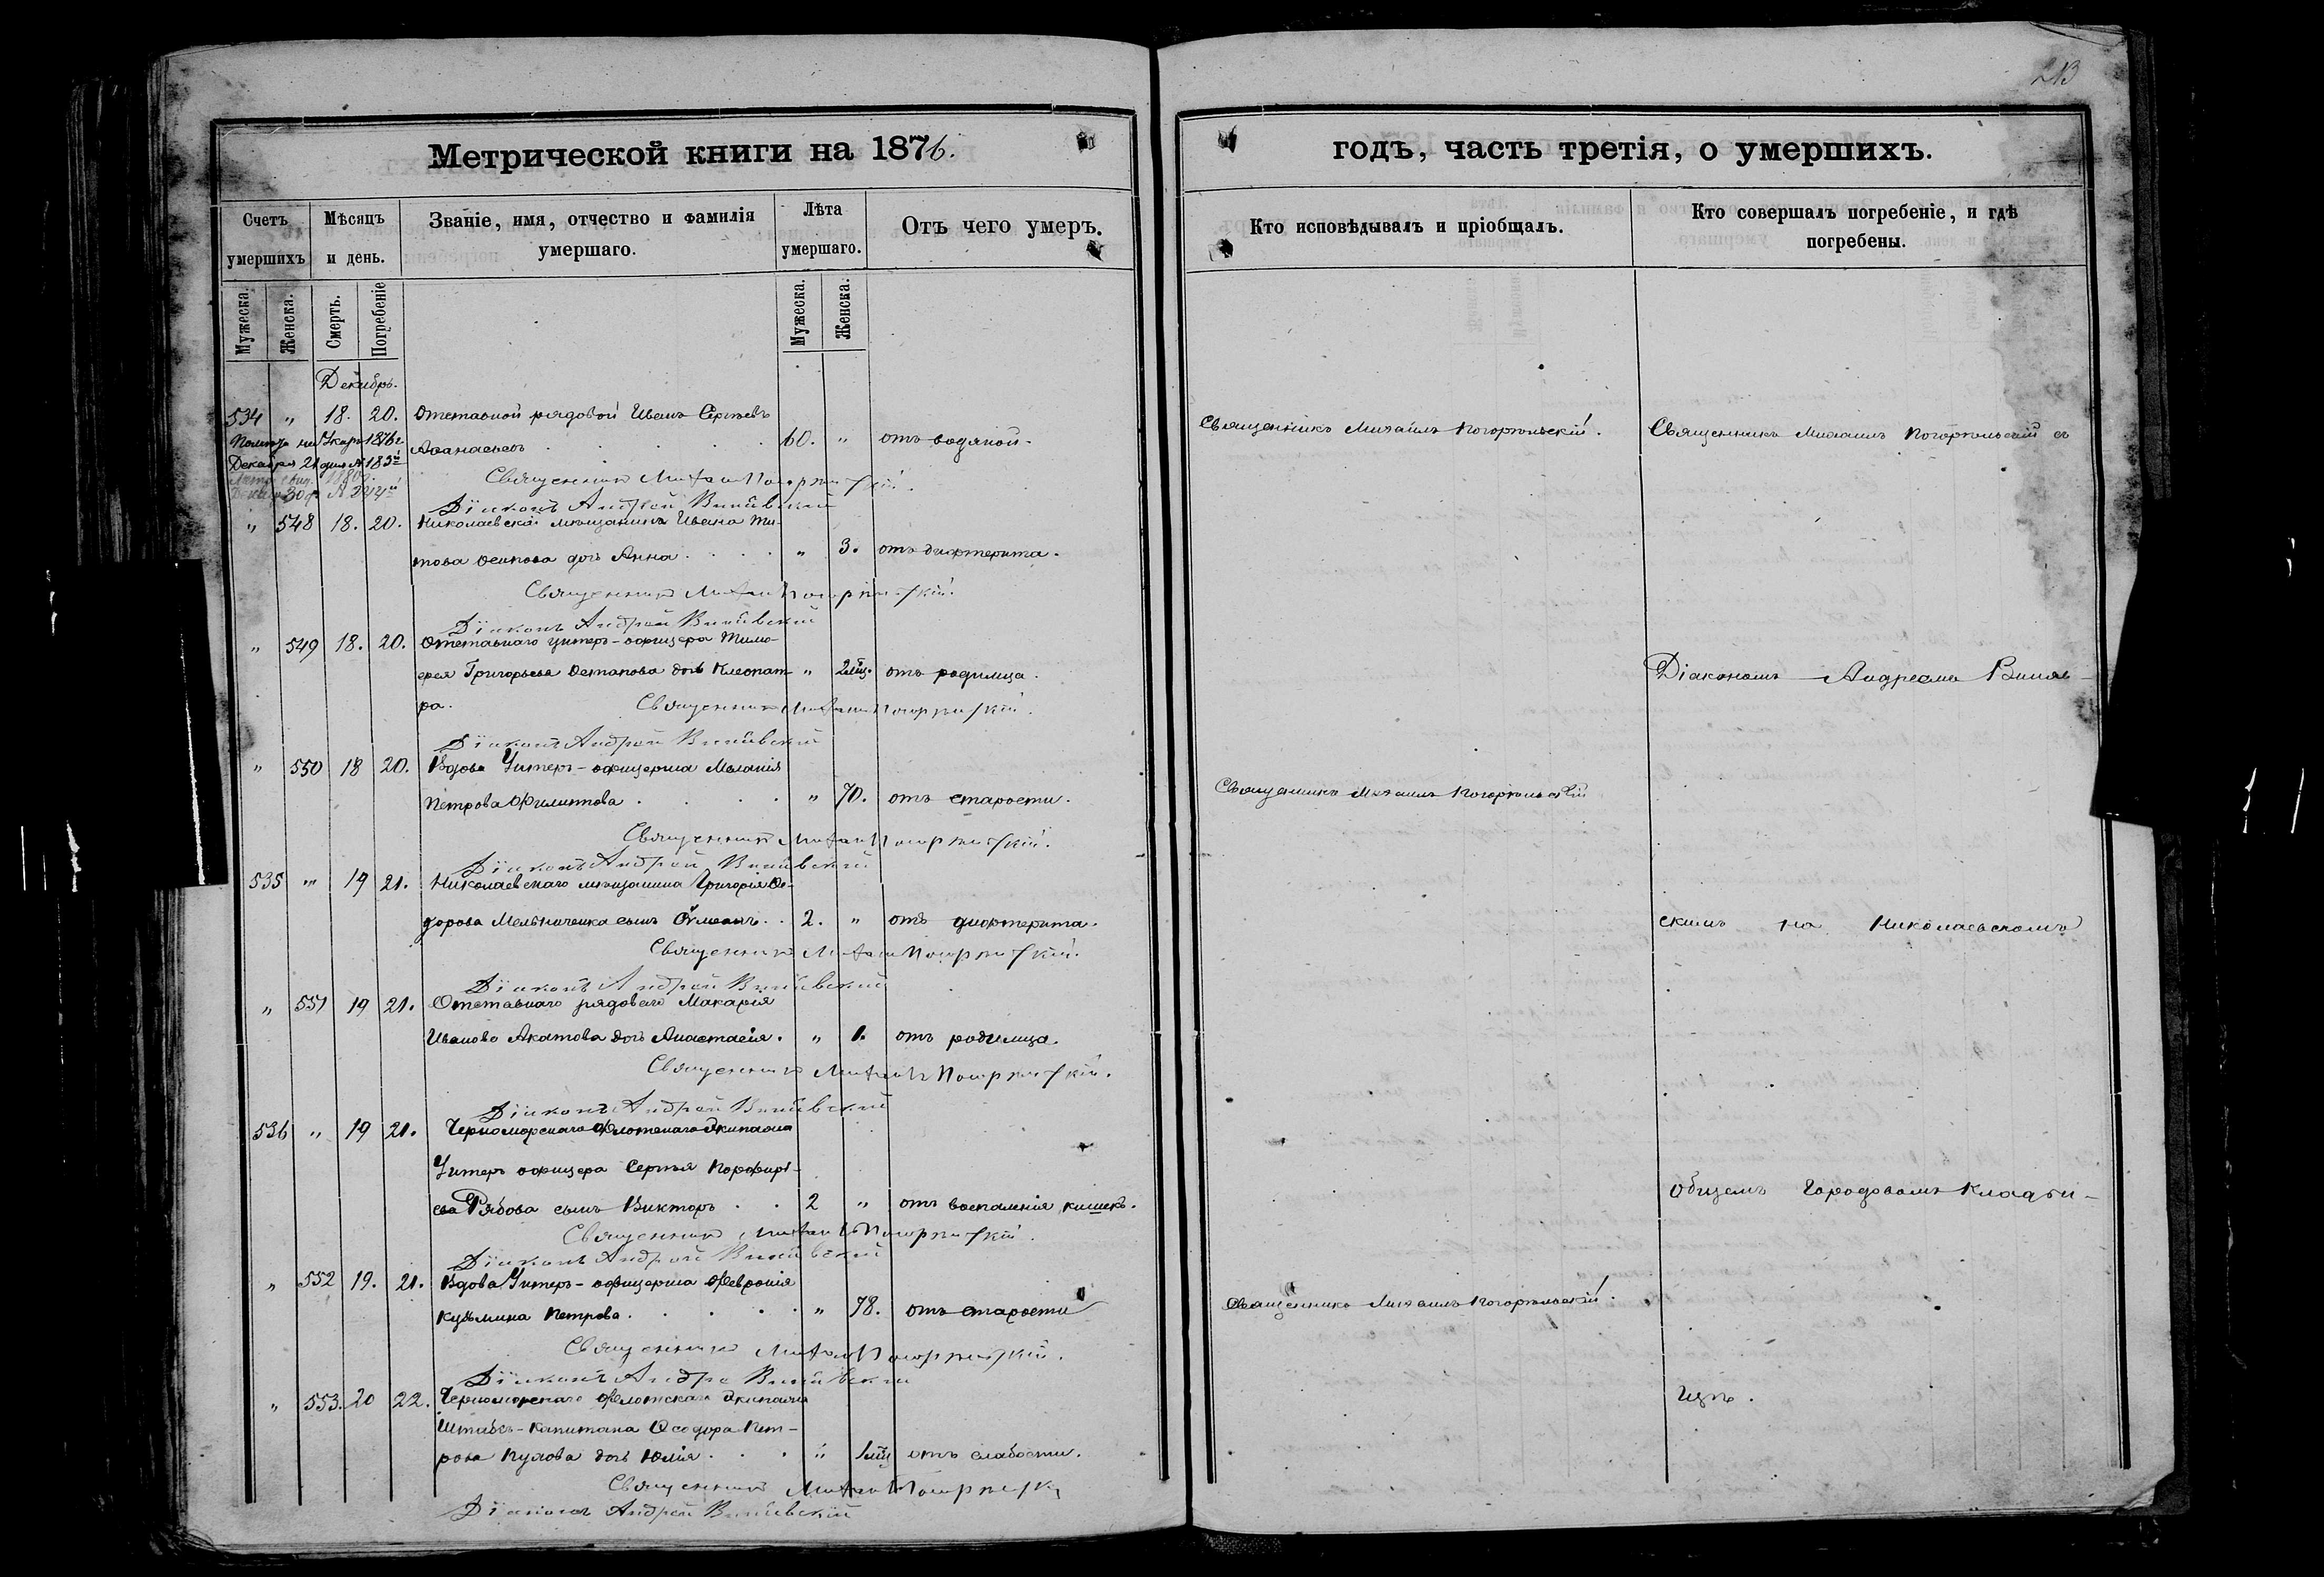 213
Метрической книги на 1876.
годъ, часть третія, о умершихъ.
Счетъ умершихъ
Мѣсяцъ и день.
Званіе, имя, отчество и фамилія умершаго.
Лѣта умершаго.
Отъ чего умеръ.
Кто исповѣдывалъ и пріобщалъ.
Кто совершалъ погребеніе, и гдѣ погребены.
Мужеска.
Женска.
Смерть.
Погребеніе
Мужеска.
Женска.
Декабрь.
534 " 18. 20. Отставной рядовой Иванъ Сергѣевъ
Аѳанасьевъ 60. " отъ водяной. Священникъ Михаилъ Погорѣльскій. Священникъ Михаилъ Погорѣльскій съ
Декабря 21 дня № 183й
Священникъ Михаилъ Погорѣльскій.
Діаконъ Андрей Виніевскій
" 548 18. 20. Николаевскаго мѣщанина Ивана Ти-
това Осипова дочь Анна " 3. отъ дифтерита.
Священникъ Михаилъ Погорѣльскій.
Діаконъ Андрей Виніевскій
" 549 18. 20. Отставнаго унтеръ-офицера Тимо-
фея Григорьева Остапова дочь Клеопат- " 2 мц. отъ родимца. Діакономъ Андреемъ Виніев-
ра. Священникъ Михаилъ Погорѣльскій.
Діаконъ Андрей Виніевскій
" 550 18 20. Вдова Унтеръ-офицерша Меланія
Петрова Филиппова " 70. отъ старости. Священникъ Михаилъ Погорѣльскій
Священникъ Михаилъ Погорѣльскій.
Діаконъ Андрей Виніевскій
535 " 19 21. Николаевскаго мѣщанина Григорія Ѳе-
дорова Мельниченка сынъ 2. " отъ дифтерита. скимъ на Николаевскомъ
Священникъ Михаилъ Погорѣльскій.
Діаконъ Андрей Виніевскій
" 551 19 21. Отставнаго рядоваго Макарія
Иванова Акатова дочь Анастасія. " 1. отъ родимца.
Священникъ Михаилъ Погорѣльскій.
Діаконъ Андрей Виніевскій
536 " 19 21. Черноморскаго Флотскаго Экипажа
Унтеръ офицера Сергѣя Порфирь-
ева Рябова сынъ Викторъ 2 " отъ воспаленія кишекъ. общемъ Городовомъ Кладби-
Священникъ Михаилъ Погорѣльскій.
Діаконъ Андрей Виніевскій
" 552 19. 21. Вдова Унтеръ-офицерша Февронія
Кузьмина Петрова. " 78. отъ старости Священникъ Михаилъ Погорѣльскій.
Священникъ Михаилъ Погорѣльскій.
Діаконъ Андрей Виніевскій
" 553. 20 22. Черноморскаго Флотскаго Экипажа щѣ.
Штабсъ-Капитана Ѳеодора Пет-
рова дочь Юлія " 1 мц отъ слабости.
Священникъ Михаилъ Погорѣльскій
Діаконъ Андрей Виніевскій